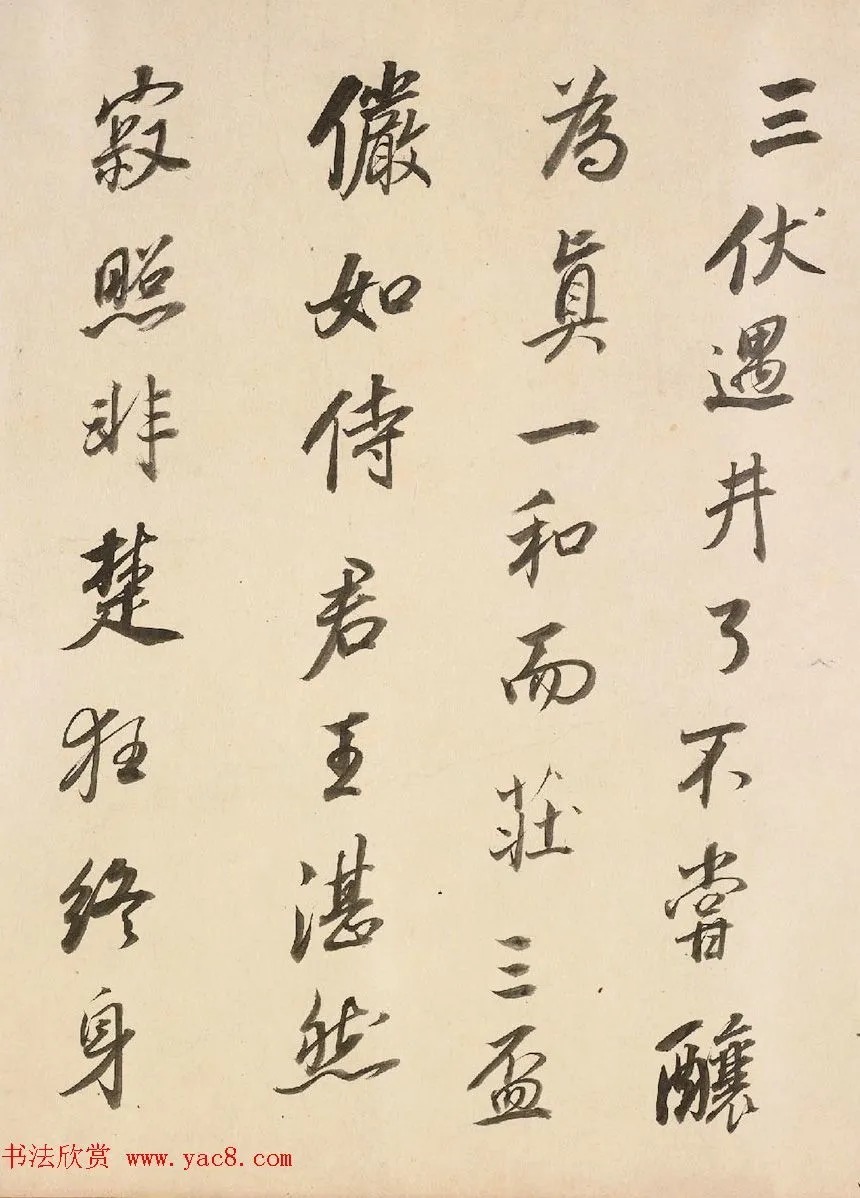 三伏遇井了不嘗釀
為眞一和而莊三盃
儼如侍君王湛然
寂照非楚狂終身
书法欣赏 www.yac8.com